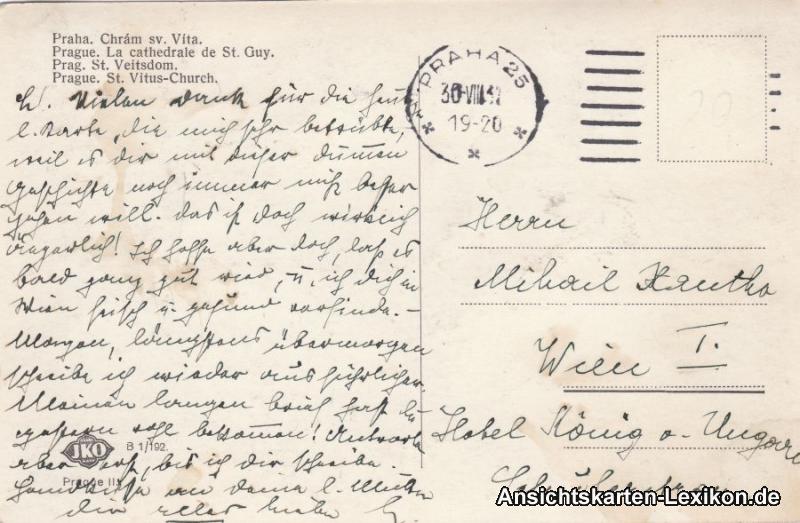 Praha. Chrám sv. Víta.
Prague. La cathedrale de St. Guy.
Prag. St. Veitsdom.
Prague. St. Vitus-Church.
PRAHA 25
30 VIII 32
19-20
L! Vielen Dank für die heut.
l. Karte, die mich sehr betrübte,
weil es dir mit dieser dummen
Geschichte noch immer nicht besser
gehen will. Das ist doch wirklich
ärgerlich! Ich hoffe aber doch, daß es
bald ganz gut wird, u. ich dich in
Wien frisch u. gesund vorfinde. -
Morgen, längstens übermorgen
schreibe ich wieder ausführlicher.
Meinen langen Brief hast du
gestern wohl bekommen! Antworte
aber erst, bis ich dir schreibe.
Handküsse an deine l. Mutter
dir alles
Herrn
Mihail Xantho
Wien I.
Hotel König v. Ungarn
Schulerstrasse
JKO
B 1/192.
Prague II.
Ansichtskarten-Lexikon.de